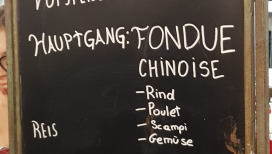 HAUPTGANG: FONDUE
CHINOISE
- Rind
- Poulet
- Scampi
- Gemüse
REIS